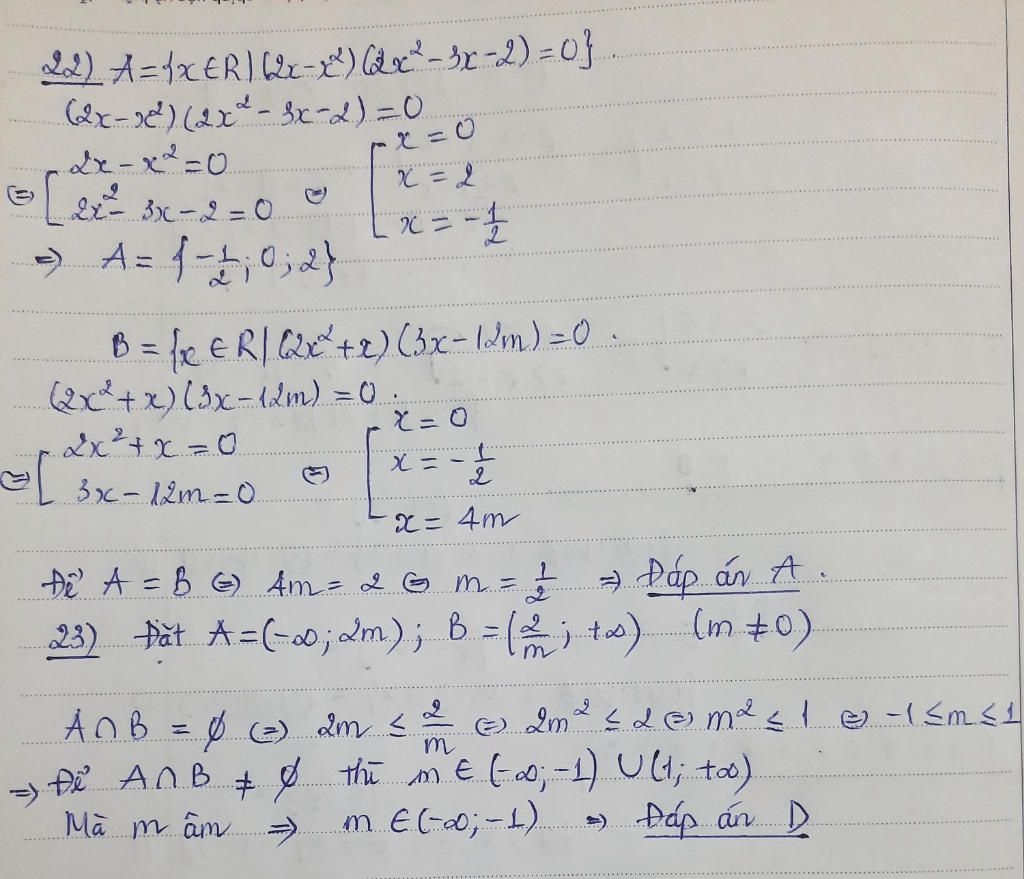 22) A = {x ∈ R | (2x - x²)(2x² - 3x - 2) = 0}.
(2x - x²)(2x² - 3x - 2) = 0
⇔ [ 2x - x² = 0
2x² - 3x - 2 = 0
⇔ [ x = 0
x = 2
x = -1/2
⇒ A = {-1/2; 0; 2}
B = {x ∈ R | (2x² + x)(3x - 12m) = 0.
(2x² + x)(3x - 12m) = 0.
⇔ [ 2x² + x = 0
3x - 12m = 0
⇔ [ x = 0
x = -1/2
x = 4m
Để A = B ⇔ 4m = 2 ⇔ m = 1/2 ⇒ Đáp án A.
23) Đặt A = (-∞; 2m); B = (2/m; +∞) (m ≠ 0)
A ∩ B = ∅ ⇔ 2m ≤ 2/m ⇔ 2m² ≤ 2 ⇔ m² ≤ 1 ⇔ -1 ≤ m ≤ 1
⇒ Để A ∩ B ≠ ∅ thì m ∈ (-∞; -1) ∪ (1; +∞)
Mà m âm ⇒ m ∈ (-∞; -1) ⇒ Đáp án D